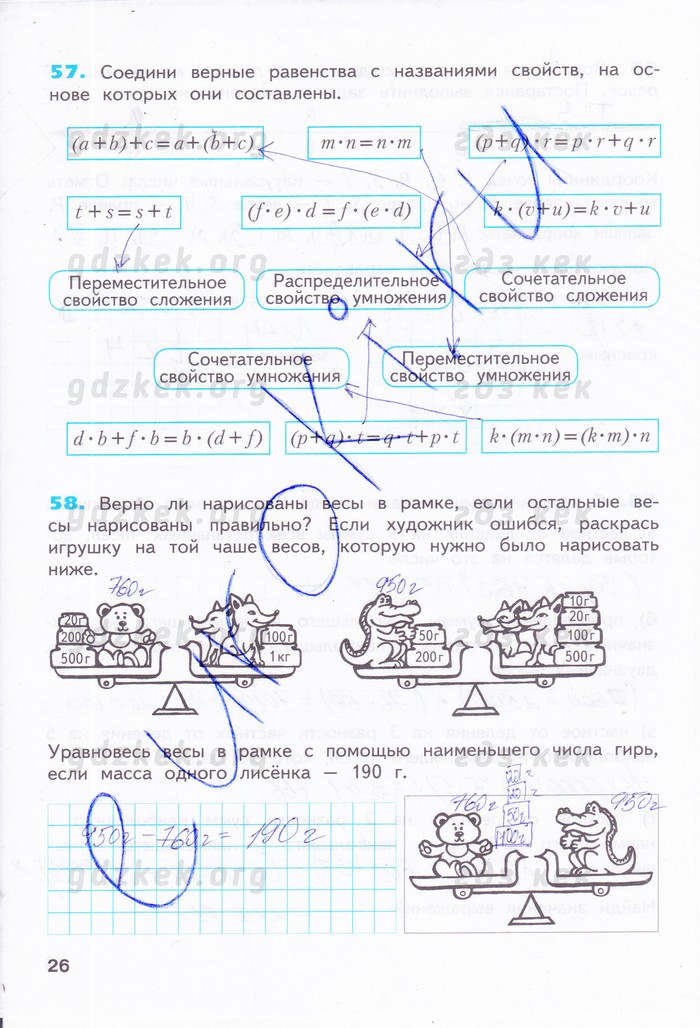 57. Соедини верные равенства с названиями свойств, на ос-
нове которых они составлены.
(a+b)+c=a+(b+c)
m·n=n·m
(p+q)·r=p·r+q·r
t+s=s+t
(f·e)·d=f·(e·d)
k·(v+u)=k·v+u
Переместительное
свойство сложения
Распределительное
свойство умножения
Сочетательное
свойство сложения
Сочетательное
свойство умножения
Переместительное
свойство умножения
d·b+f·b=b·(d+f)
(p+q)·t=q·t+p·t
k·(m·n)=(k·m)·n
58. Верно ли нарисованы весы в рамке, если остальные ве-
сы нарисованы правильно? Если художник ошибся, раскрась
игрушку на той чаше весов, которую нужно было нарисовать
ниже.
760г
950г
20г
200г
500г
100г
1кг
50г
200г
10г
20г
100г
500г
Уравновесь весы в рамке с помощью наименьшего числа гирь,
если масса одного лисёнка — 190 г.
950г - 760г = 190г
760г
950г
50г
100г
26
gdzkek.org
гдз кек